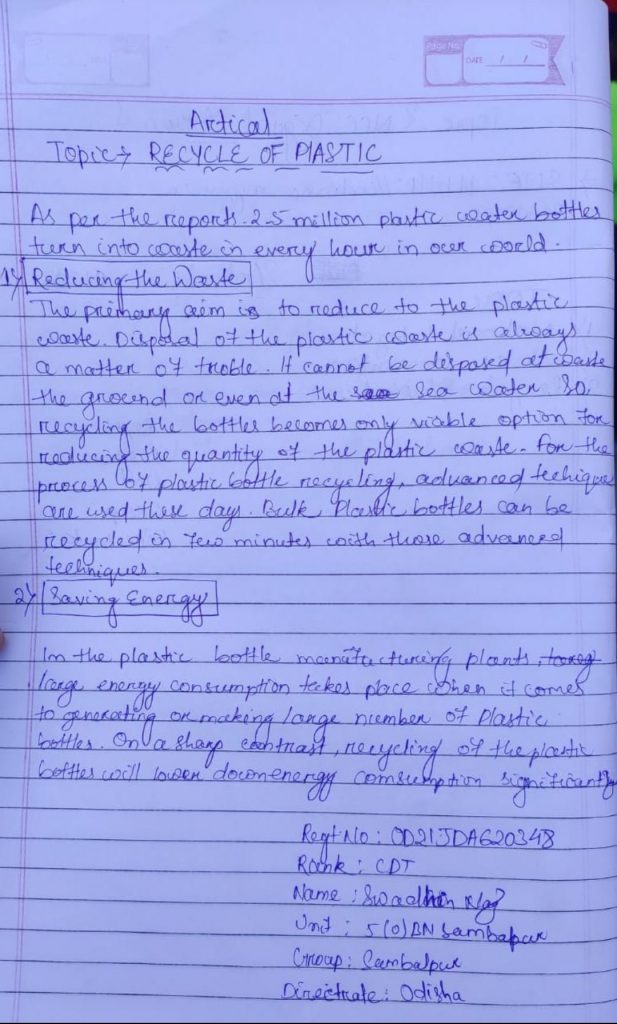 Page No.
DATE / /
Artical
Topic→ RECYCLE OF PlASTIC
As per the reports. 2.5 million plastic water bottles
turn into waste in every hour in our world.
1) Reducing the Waste
The primary aim is to reduce to the plastic
waste. Disposal of the plastic waste is always
a matter of troble. It cannot be disposed at waste
the ground or even at the sea Sea water. So,
recycling the bottles becomes only viable option for
reducing the quantity of the plastic waste. For the
process of plastic bottle recycling, advanced techique
are used these days. Bulk Plastic bottles can be
recycled in few minutes with those advanced
techniques.
2) Saving Energy
In the plastic bottle manufacturing plants,
large energy consumption takes place when it comes
to generating or making large number of Plastic
bottles. On a sharp contrast, recycling of the plastic
bottles will lower down energy comsumption significantly
Regt No : OD21JDA620348
Rank : CDT
Name : Swadhin
Unit : 5(O) BN Sambalpur
Group : Sambalpur
Directrate : Odisha